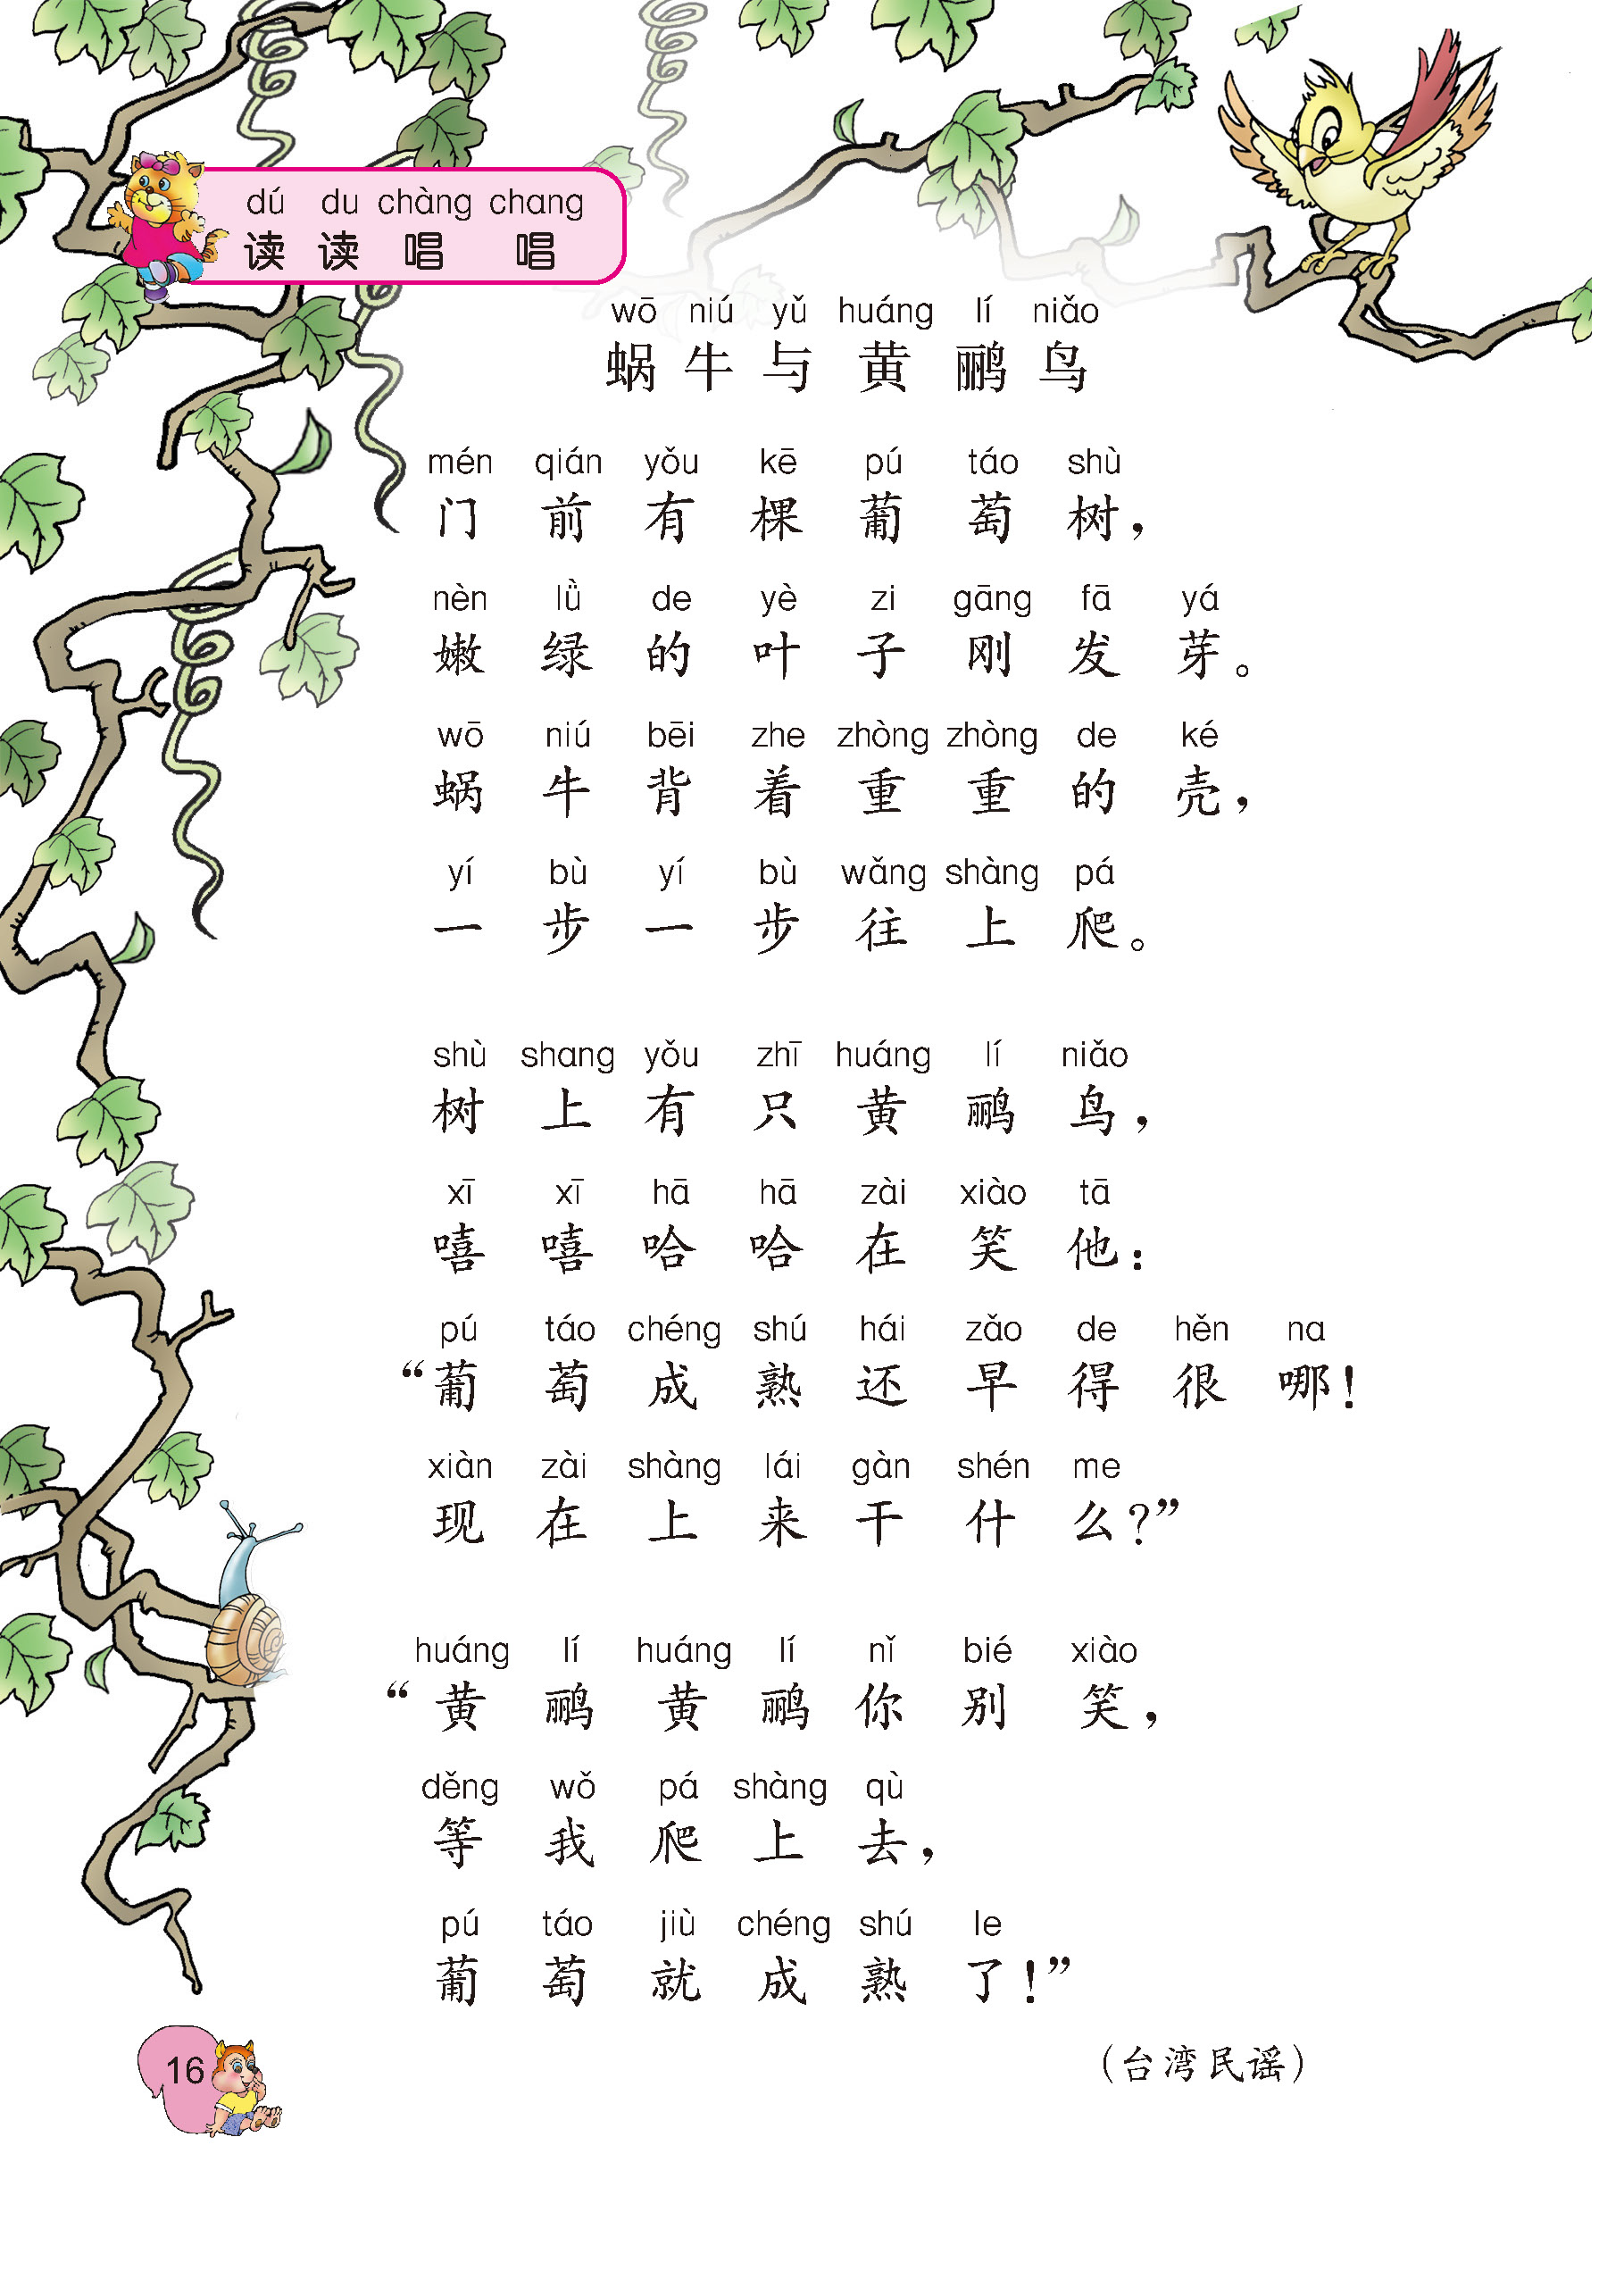 dú du chàng chang
读读唱唱
wō niú yǔ huáng lí niǎo
蜗牛与黄鹂鸟
mén qián yǒu kē pú táo shù
门前有棵葡萄树，
nèn lǜ de yè zi gāng fā yá
嫩绿的叶子刚发芽。
wō niú bēi zhe zhòng zhòng de ké
蜗牛背着重重的壳，
yí bù yí bù wǎng shàng pá
一步一步往上爬。
shù shang yǒu zhī huáng lí niǎo
树上有只黄鹂鸟，
xī xī hā hā zài xiào tā
嘻嘻哈哈在笑他：
pú táo chéng shú hái zǎo de hěn na
“葡萄成熟还早得很哪！
xiàn zài shàng lái gàn shén me
现在上来干什么？”
huáng lí huáng lí nǐ bié xiào
“黄鹂黄鹂你别笑，
děng wǒ pá shàng qù
等我爬上去，
pú táo jiù chéng shú le
葡萄就成熟了！”
（台湾民谣）
16